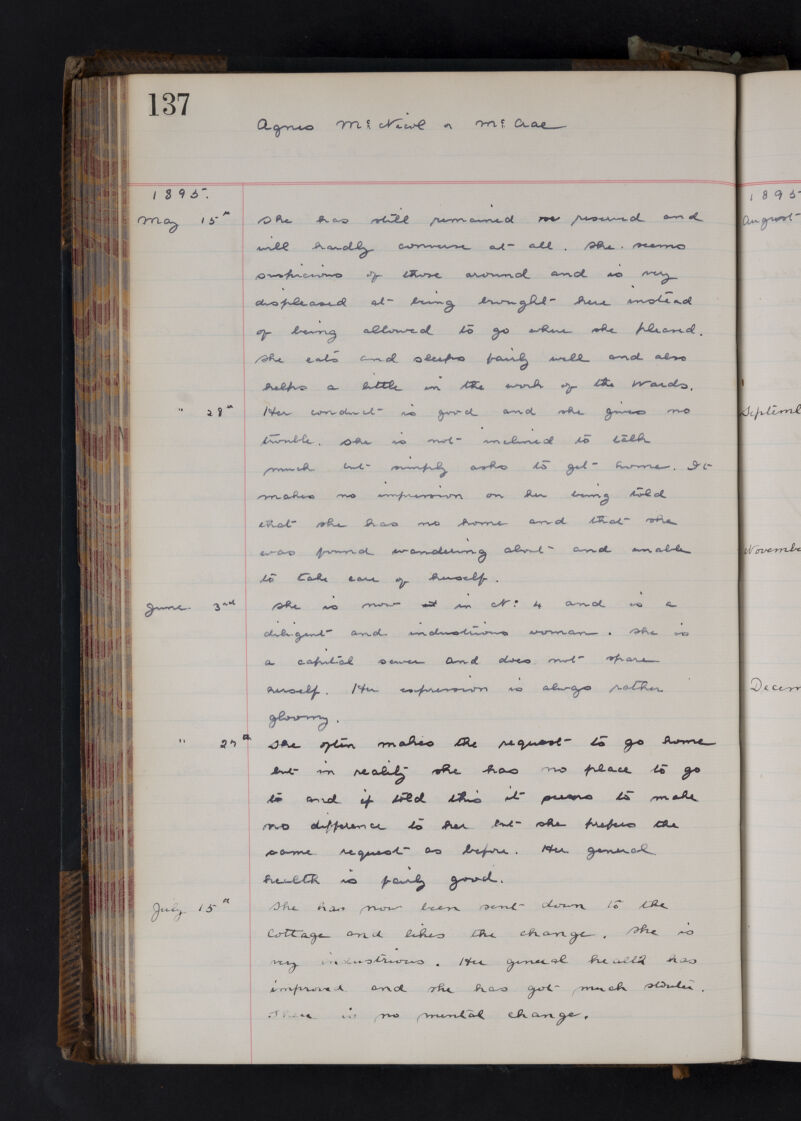 137
Agnes McNicol or McCrae
1895.
May 15th She has still remained reserved and
will hardly converse at all. She seems
suspicious of those around and is very
displeased at being brought here instead
of being allowed to go where she pleased.
She eats and sleeps fairly well and also
helps a little in the work of the Wards.
" 28th Her conduct is good and she gives no
trouble. She is not inclined to talk
much but simply asks to get home. It
makes no impression on her being told
that she has no home and that she
was found wandering about and unable
to take care of herself.
June 3rd She is now in No: 4 and is a
diligent and industrious woman. She is
a capital sewer and does not spare
herself. Her expression is always rather
gloomy.
" 27th She often makes the request to go home
but in reality she has no place to go
to and if told this it seems to make
no difference to her but she prefers the
same request as before. Her general
health is fairly good.
July 15th She has now been sent down to the
Cottage and likes the change. She is
very industrious. Her general health has
improved and she has got much stouter.
There is no mental change.
1895
August
Septemb
Novembe
Decem